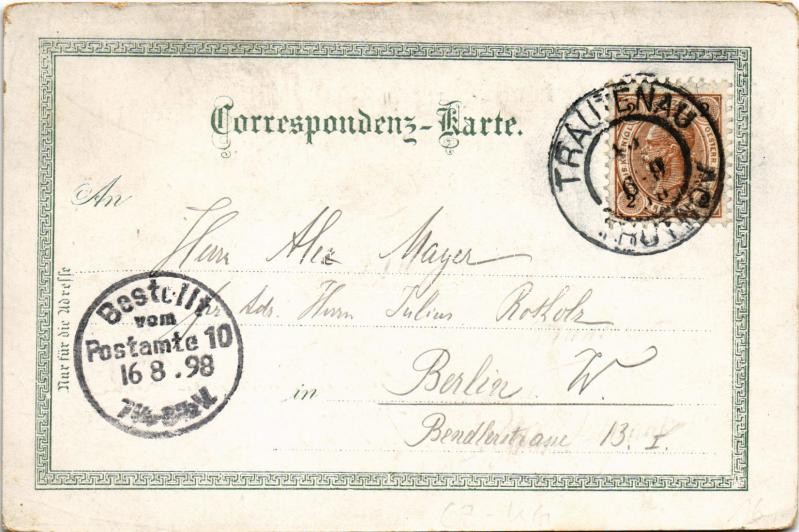 Correspondenz-Karte.
TRAUTENAU
An
Herrn Alex Mayer
Adr. Herrn Julius Rotholz
in Berlin W.
Bendlerstrasse 13. I.
Nur für die Adresse
Bestellt
vom
Postamte 10
16 8 .98